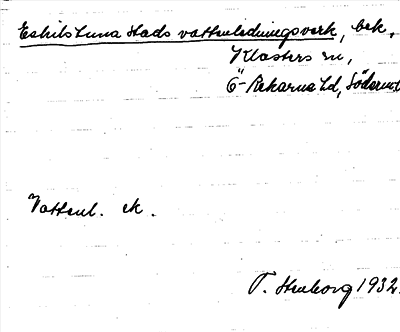 Eskilstuna stads vattenledningsverk, bek.
Klosters sn,
Ö-Rekarna hd, Söderml
Vattenl. ek.
T. Stenborg 1932.